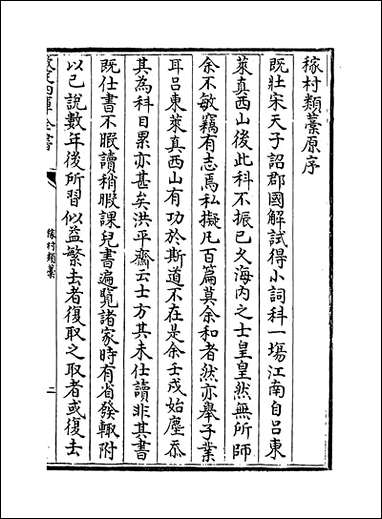 稼村類藁原序
既壯宋天子詔郡國解試得小詞科一塲江南自吕東
萊真西山後此科不振已久海内之士皇皇然無所師
余不敏竊有志焉私擬凡百篇莫余和者然亦舉子業
耳吕東萊真西山有功於斯道不在是余壬戌始塵忝
其為科目累亦甚矣洪平齋云士方其未仕讀非其書
既仕書不暇讀稍暇課兒書遍覽諸家時有省發輒附
以己說數年後所習似益繁去者復取之取者或復去
欽定四庫全書
稼村類藁
二